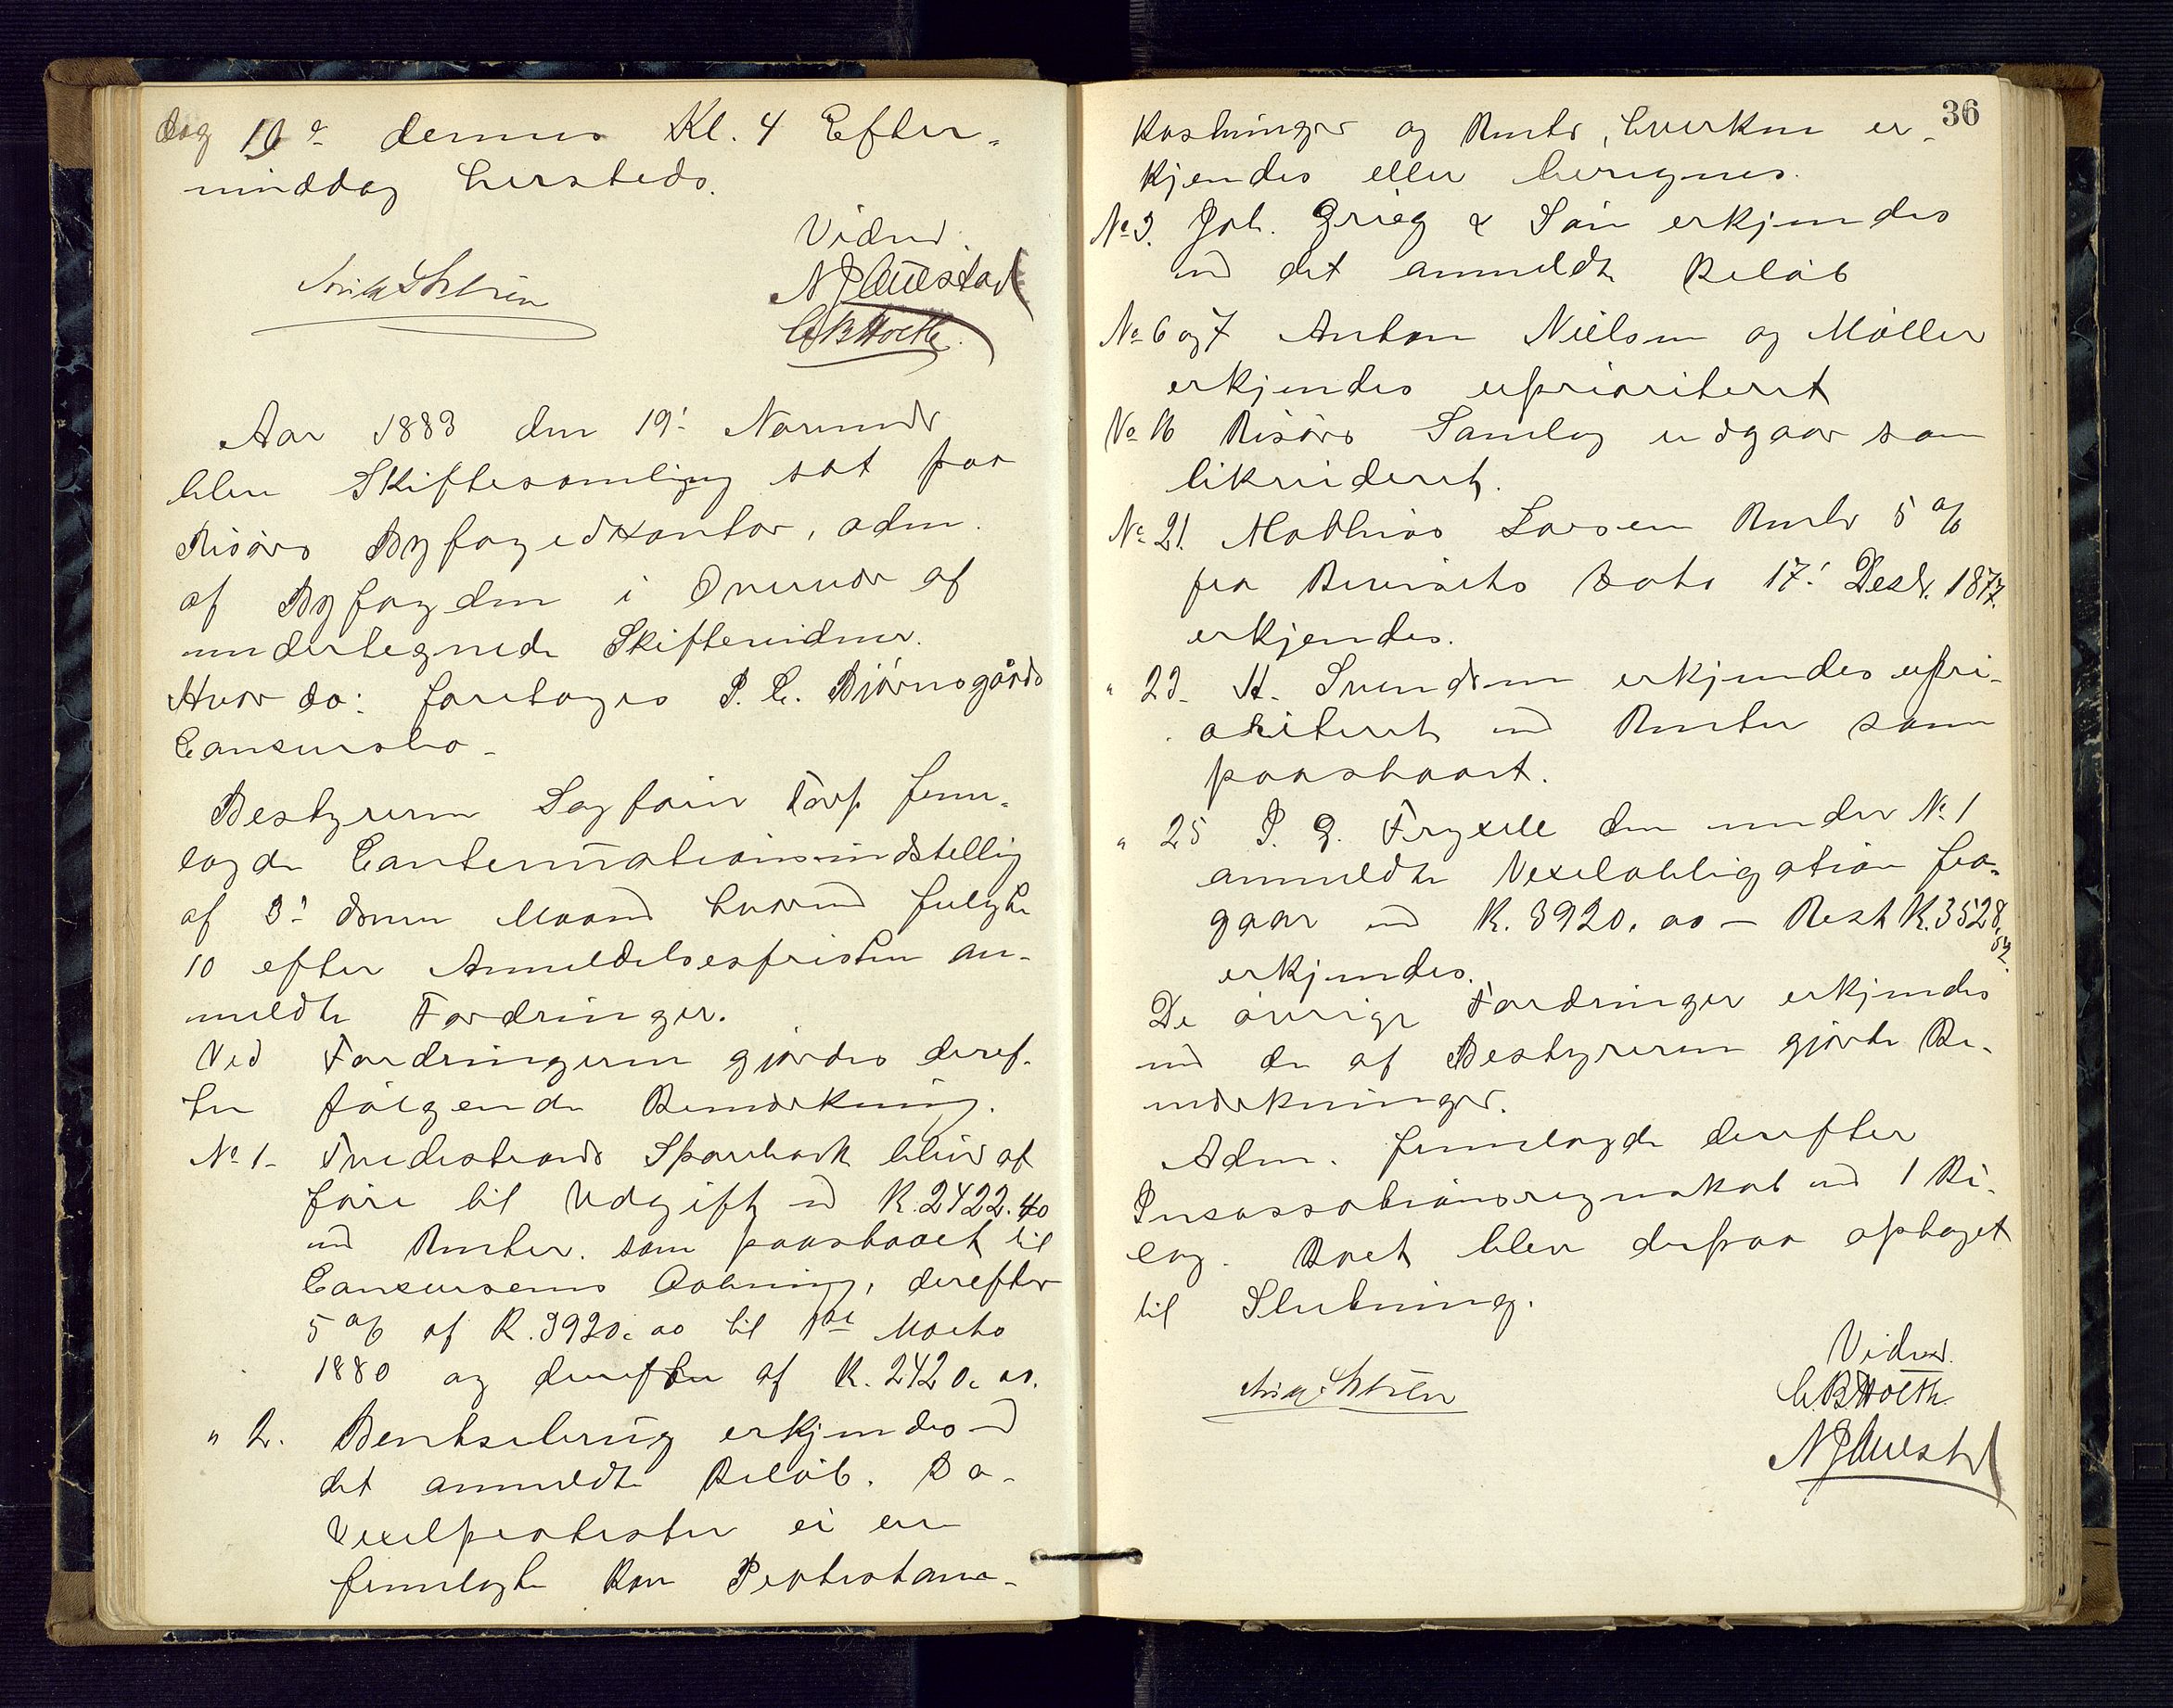 dag 19de dennes Kl. 4 Efter-
middag hersteds.
Vidner
N J Auestad
C B Holth.
Aar 1883 den 19' Novembr
blev Skiftesamling sat paa
Risörs Byfogedkontor, adm.
af Byfogden i Overvær af
undertegnede Skiftevidner.
Hvor da: foretoges P. C. Björnsgårds
Concursbo.
Bestyreren Sagförer Torp frem-
lagde Conternationsindstilling
af 3' denne Maaned hvormed fulgte
10 efter Anmeldelsesfristen an-
meldte Fordringer.
Ved Fordringerne gjordes deref-
ter fölgende Bemærkning.
No 1- Tvedestrands Sparebank bliver at
före til Udgift med K. 2422.40
med Renter som paastaaet til
Concursens Aabning, derefter
5 % af K. 3920.00 til 1ste Marts
1880 og derefter af K. 2420.00.
" 2. Bentsebrug erkjendes med
det anmeldte Belöb. Da
Vexelprotester ei ere
fremlagte kan Protestom-
36
kostninger og Renter, hverken er-
kjendes eller beregnes.
No 3. Joh. Grieg & Sön erkjendes
med det anmeldte Belöb
No 6 og 7 Anton Nielsen og Möller
erkjendes uprioriteret
No 16 Risörs Samlag udgaar som
likvideret.
No 21. Mathias Larsen Renter 5 %
fra Beviset's Dato 17' Desbr. 1877.
erkjendes.
" 23- H. Svendsen erkjendes upri-
oriteret med Renter som
paastaaet.
" 25 P. G. Fryxell den under No 1
anmeldte Vexelobligation fra-
gaar med K. 3920.00 - Rest K. 3528.52.
erkjendes.
De övrige Fordringer erkjendes
med de af Bestyreren gjorte Be-
mærkninger.
Adm. fremlagde derefter
Incassationsregnskab med 1 Bi-
lag. Boet blev derpaa optaget
til Slutning.
Vidner.
C. B Holth.
N J Auestad